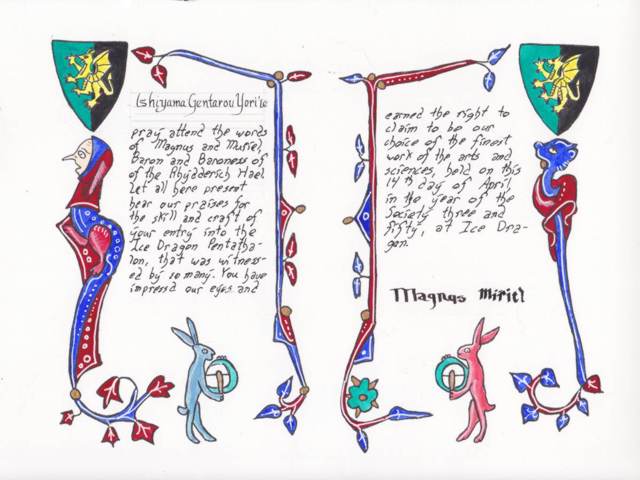 Ishiyama Gentarou Yori'ie
pray attend the words
of Magnus and Muriel,
Baron and Baroness of
of the Rhydderich Hael
Let all here present
hear our praises for
the skill and craft of
your entry into the
Ice Dragon Pentatha-
lon, that was witness-
ed by so many. You have
impressd our eyes and
earned the right to
claim to be our
choice of the finest
work of the arts and
sciences, held on this
14th day of April
in the year of the
Society three and
fifty, at Ice Dra-
gon.
Magnus Miriel